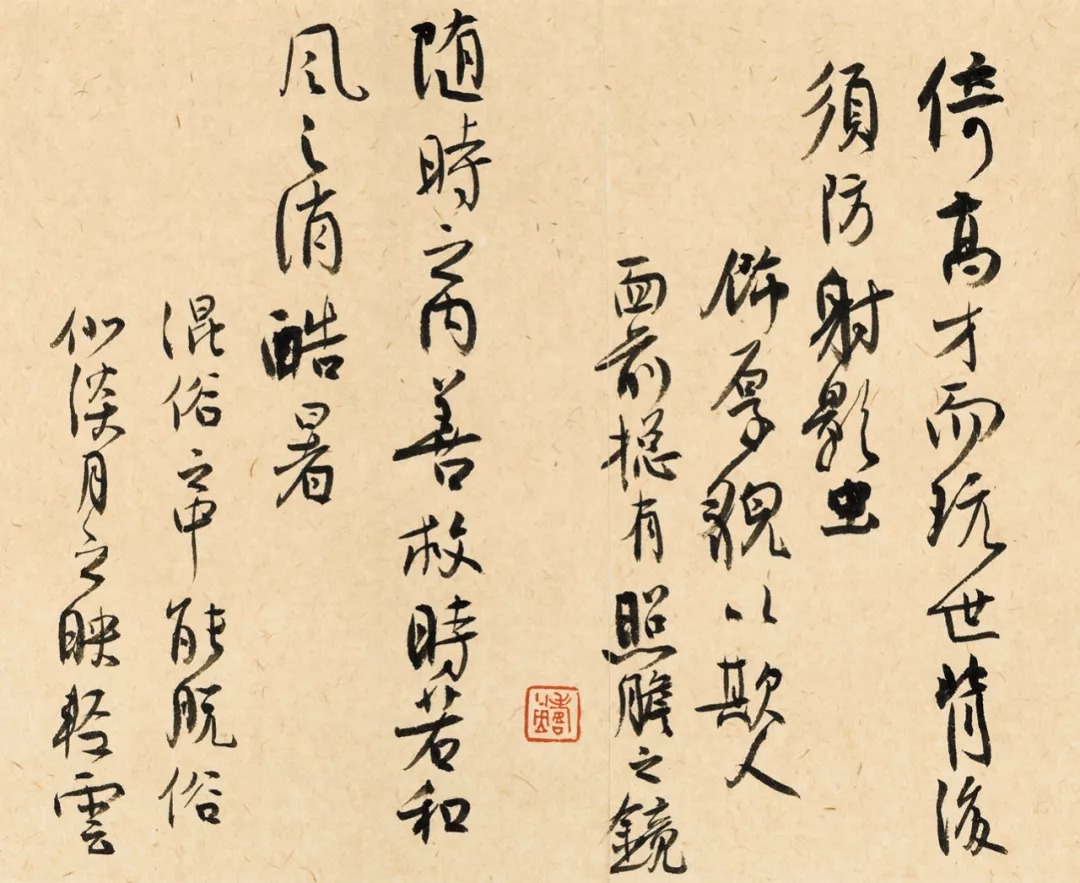 倚高才而玩世背後
須防射影虫
飾厚貌以欺人
面前摠有照膽之鏡
随時之内善救時若和
風之消酷暑
混俗之中能脱俗
似淡月之映輕雲